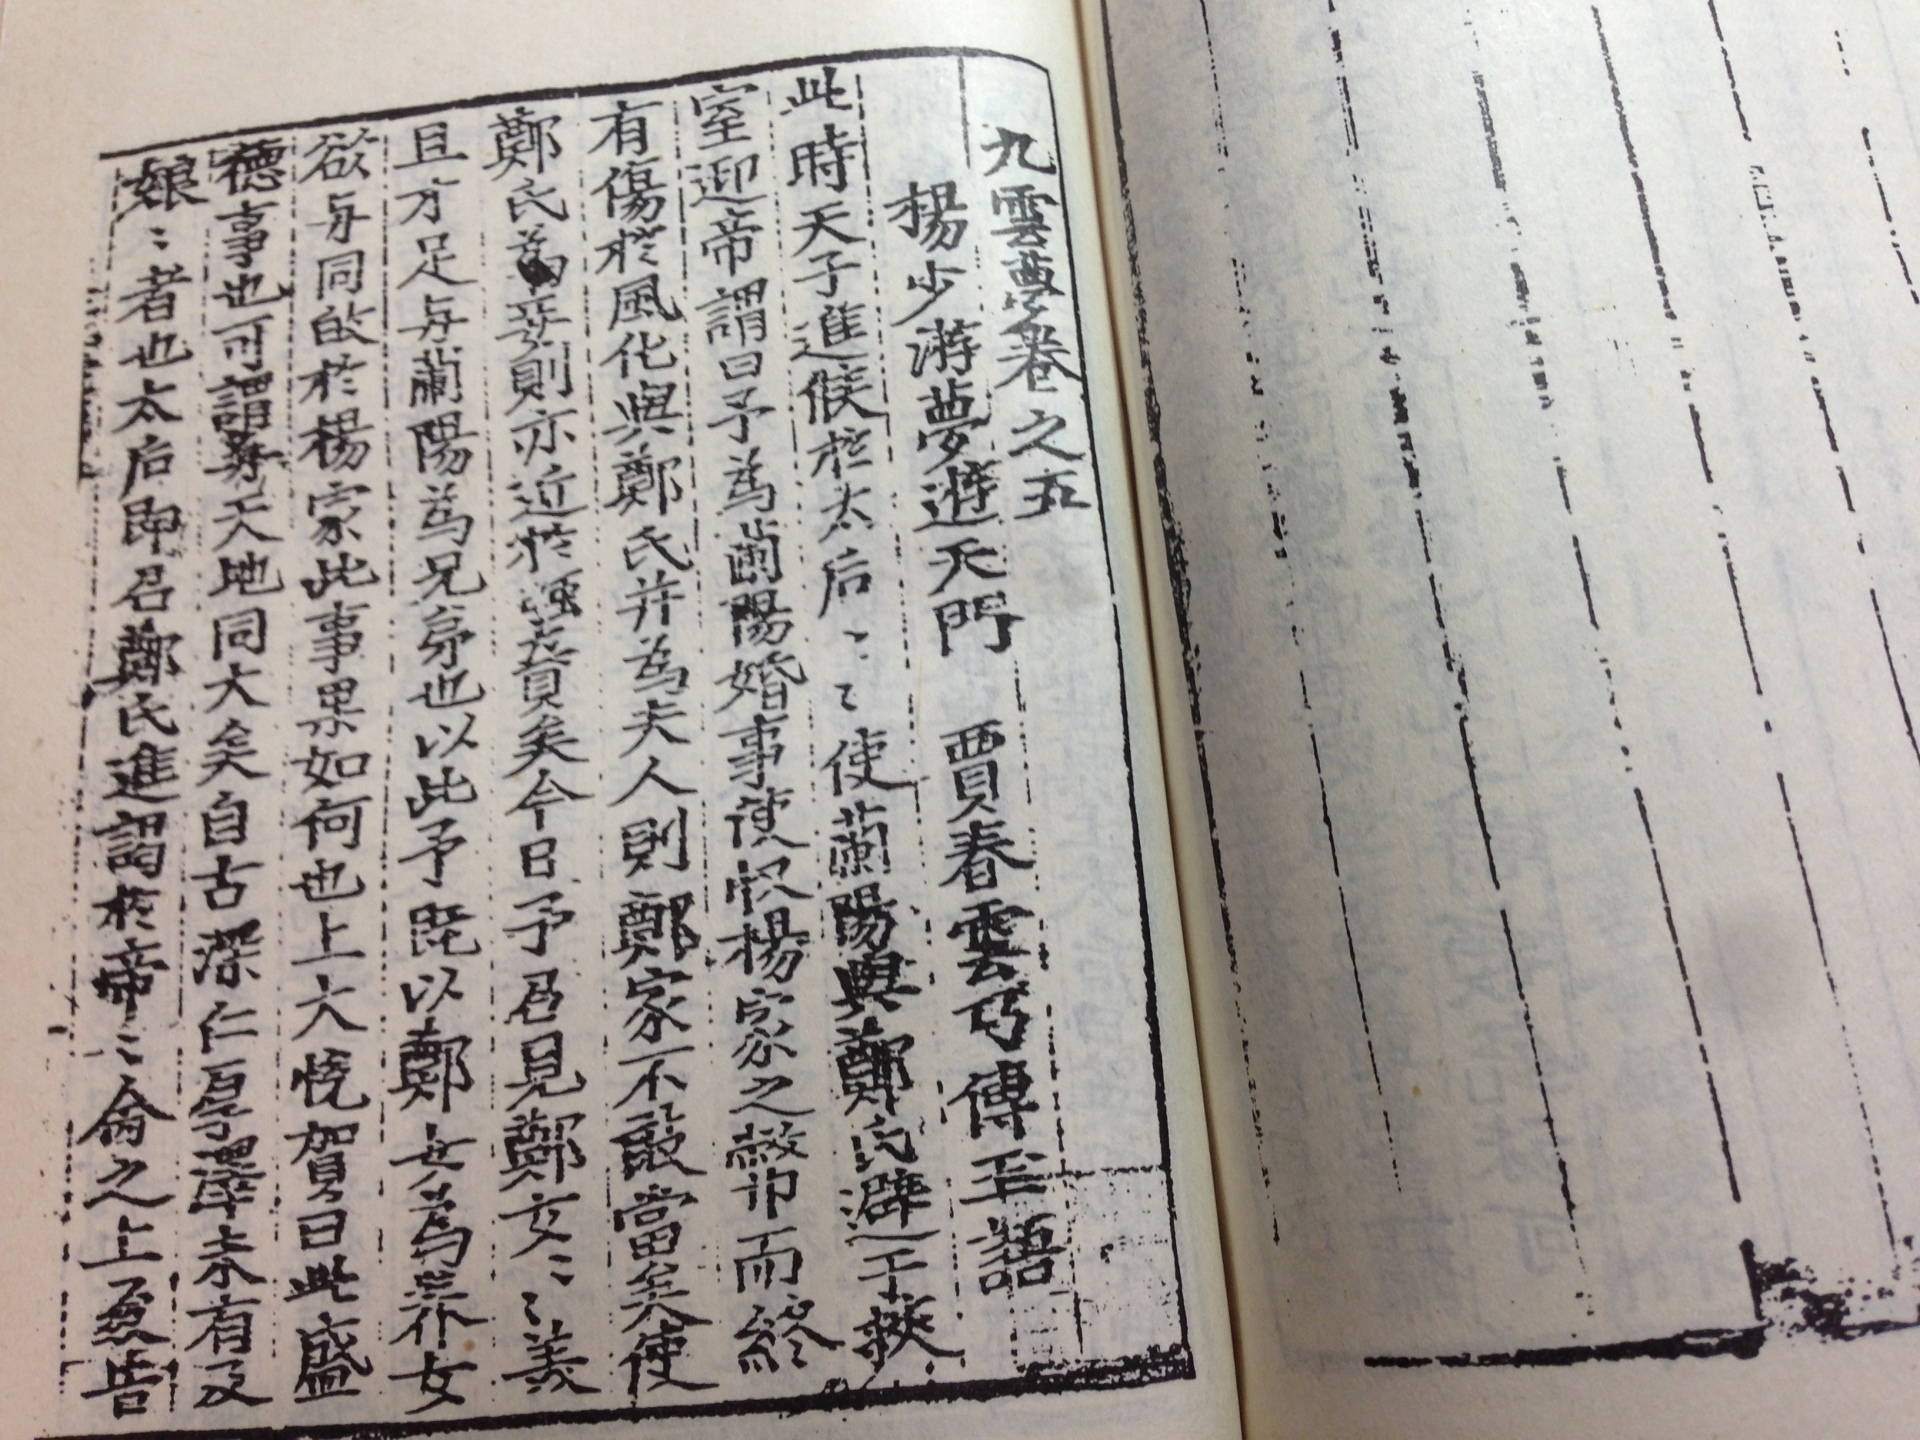 九雲夢卷之五
楊少游夢遊天門　賈春雲巧傳玉語
此時天子進候於太后〻〻使蘭陽與鄭氏避于挾
室迎帝謂曰予為蘭陽婚事使収楊家之幣而終
有傷於風化與鄭氏并為夫人則鄭家不敢當矣使
鄭氏為妾則亦近於强矣今日予召見鄭女〻〻美
且才足与蘭陽為兄弟也以此予旣以鄭女為养女
欲与同敀於楊家此事果如何也上大悅賀曰此盛
德事也可謂与天地同大矣自古深仁厚澤未有及
娘〻者也太后即召鄭氏進謁於帝〻命之上